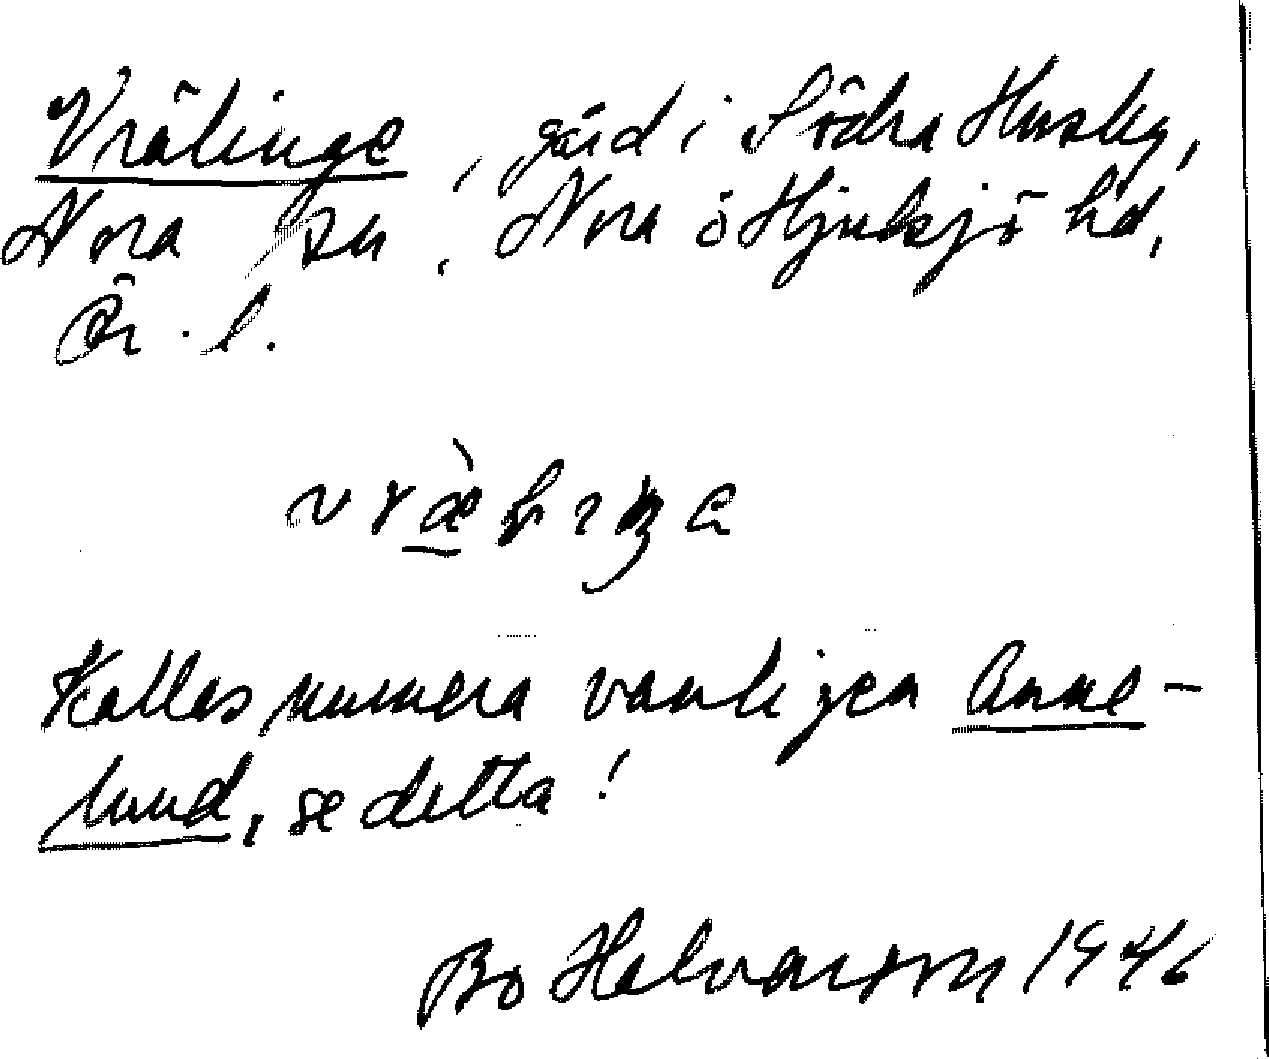 Vrälinge, gård i Södra Husby,
Nora sn, Nora o Hjulsjö hd,
Ör. l.
Kallas numera vanligen Anne-
lund, se detta!
Bo Halvarson 1946